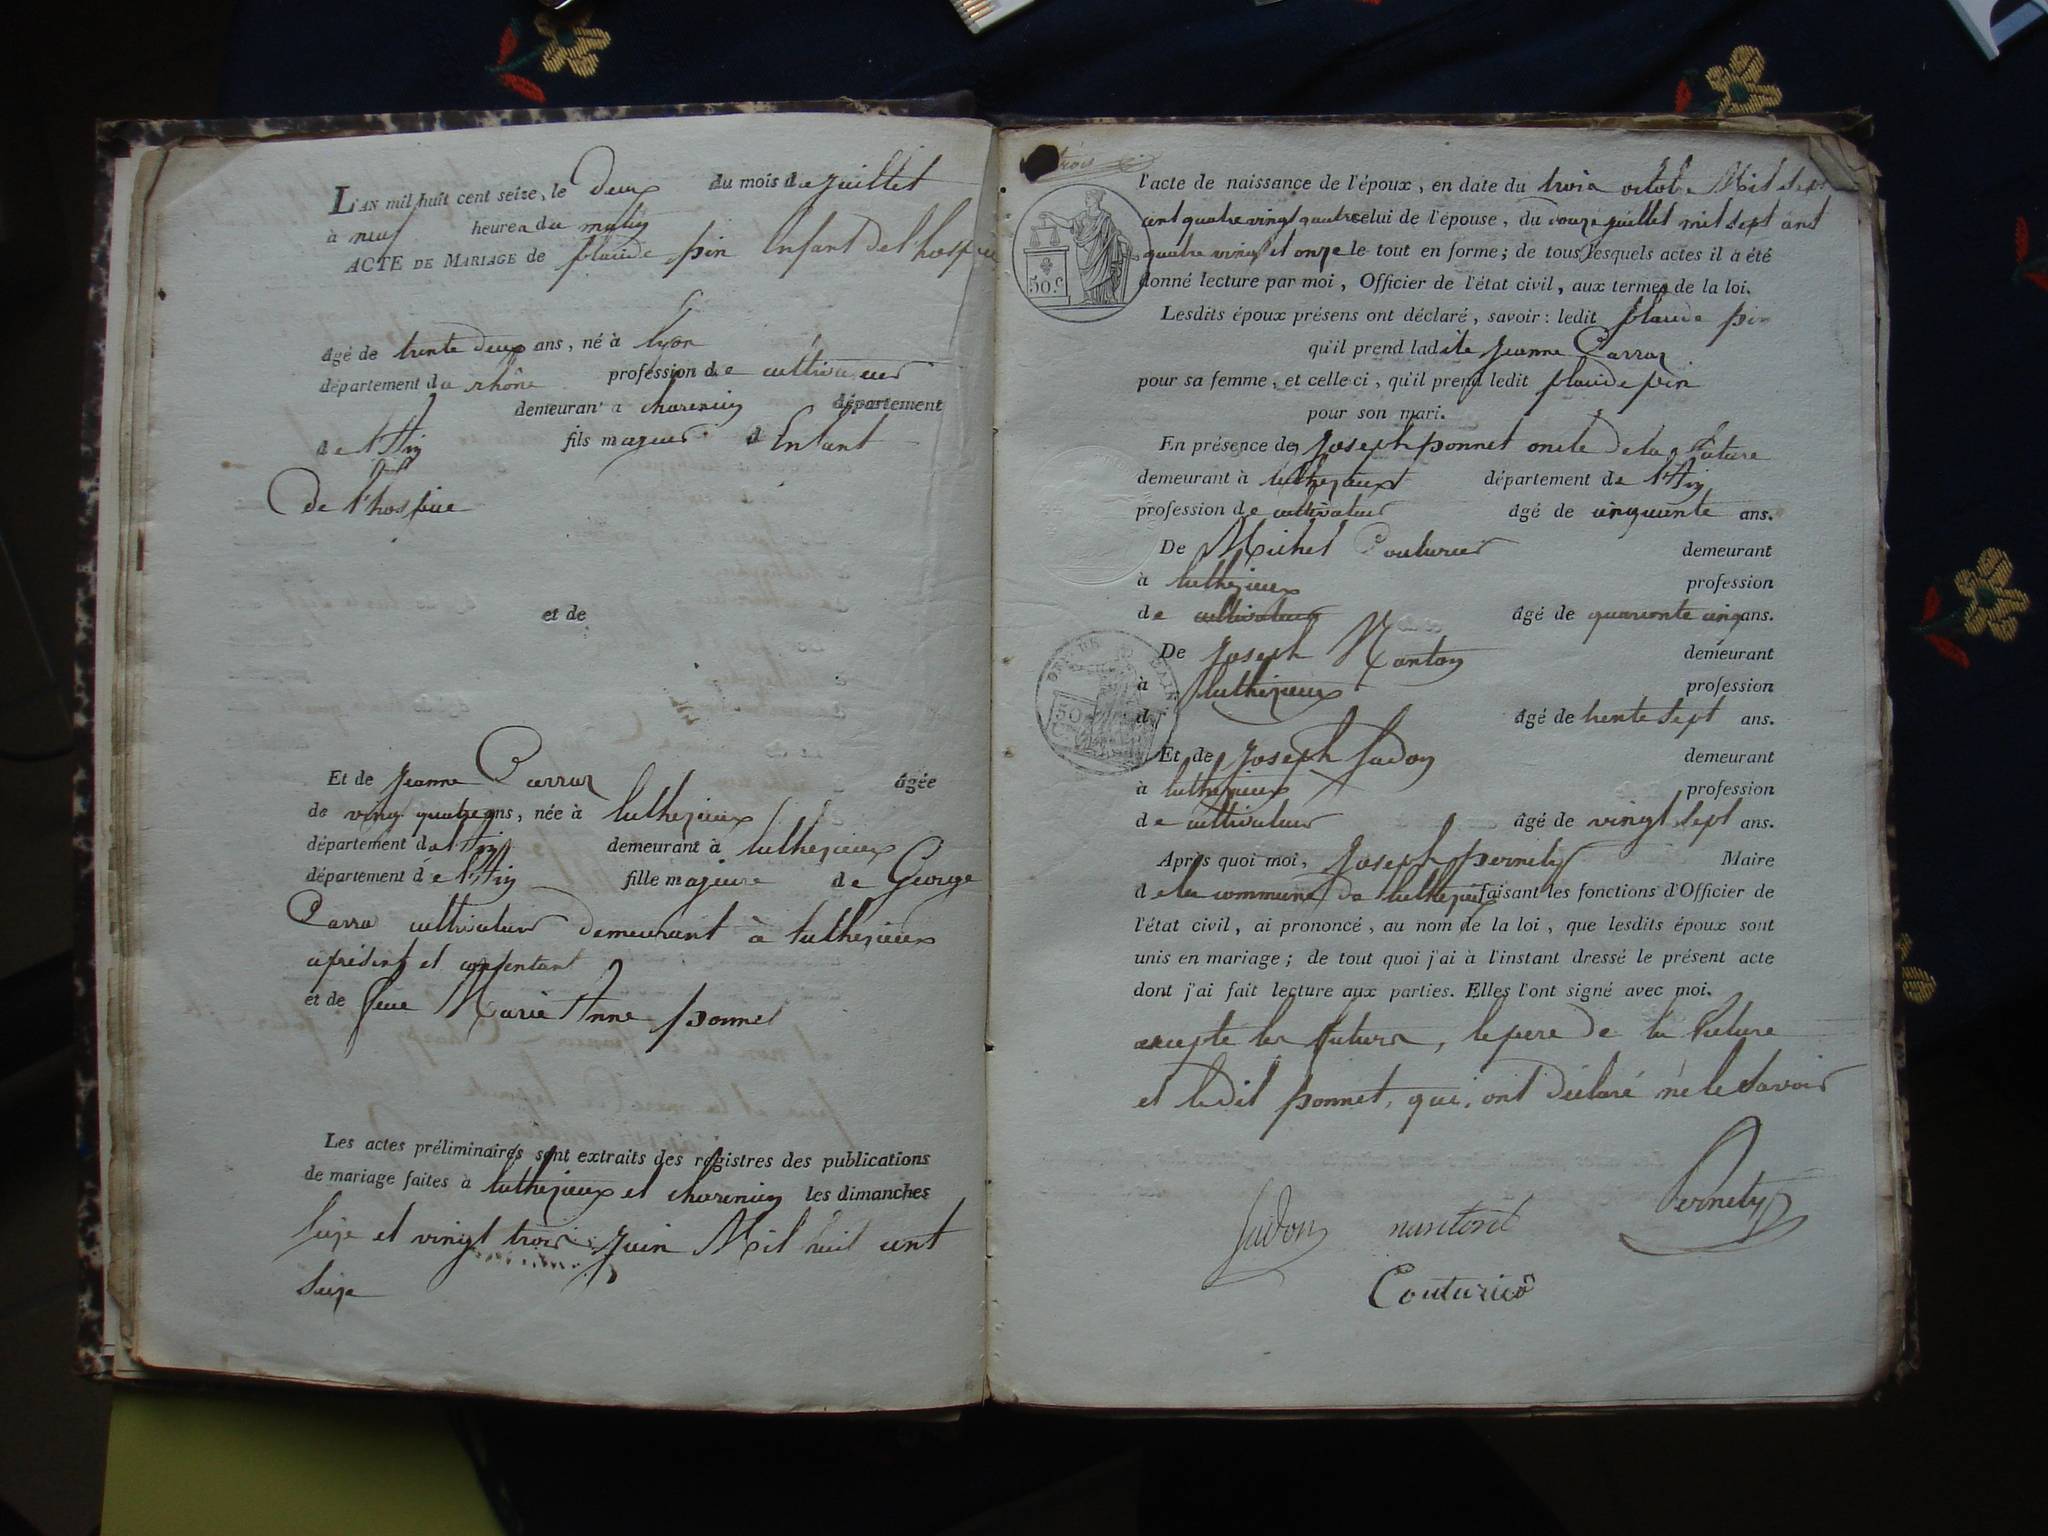 L'AN mil huit cent seize, le Deux du mois de juillet
à neuf heures du matin
ACTE DE MARIAGE de plaude pin Enfant del'hospice
âgé de trente deux ans, né à lyon
département du rhône profession de cultivateur
demeurant a charencin département
de l'Ain fils majeur d Enfant
De l'hospice
et de
Et de Jeanne Carraz âgée
de vingt quatre ans, née à luthezieux
département de l'Ain demeurant à luthezieux
département de l'Ain fille majeure de George
Carra cultivateur Demeurant à luthezieux
aprésent et consentant
et de feue Marie Anne ponnet
Les actes préliminaires sont extraits des registres des publications
de mariage faites à luthezieux et charencin les dimanches
seize et vingt trois juin Mil huit cent
seize
trois
50 c.
l'acte de naissance de l'époux, en date du trois octobre Mil sept
cent quatre vingt quatre celui de l'épouse, du douze juillet mil sept cent
quatre vingt et onze le tout en forme; de tous lesquels actes il a été
donné lecture par moi, Officier de l'état civil, aux termes de la loi.
Lesdits époux présens ont déclaré, savoir: ledit plaude pin
qu'il prend ladite Jeanne Carraz
pour sa femme, et celle ci, qu'il prend ledit plaude pin
pour son mari.
En présence de Joseph ponnet oncle de la future
demeurant à luthezieux département de l'Ain
profession de cultivateur âgé de cinquante ans.
De Michel Couturier demeurant
à luthezieux profession
de cultivateur âgé de quarante cinq ans.
De Joseph Nanton demeurant
à luthezieux profession
d âgé de trente sept ans.
Et de Joseph Judon demeurant
à luthezieux profession
de cultivateur âgé de vingt sept ans.
Après quoi moi, Joseph pernety Maire
de la commune de luthezieux faisant les fonctions d'Officier de
l'état civil, ai prononcé, au nom de la loi, que lesdits époux sont
unis en mariage; de tout quoi j'ai à l'instant dressé le présent acte
dont j'ai fait lecture aux parties. Elles l'ont signé avec moi.
excepte les futurs, le pere de la future
et ledit ponnet, qui ont déclaré ne le savoir
Judon nantond Pernety
Couturier